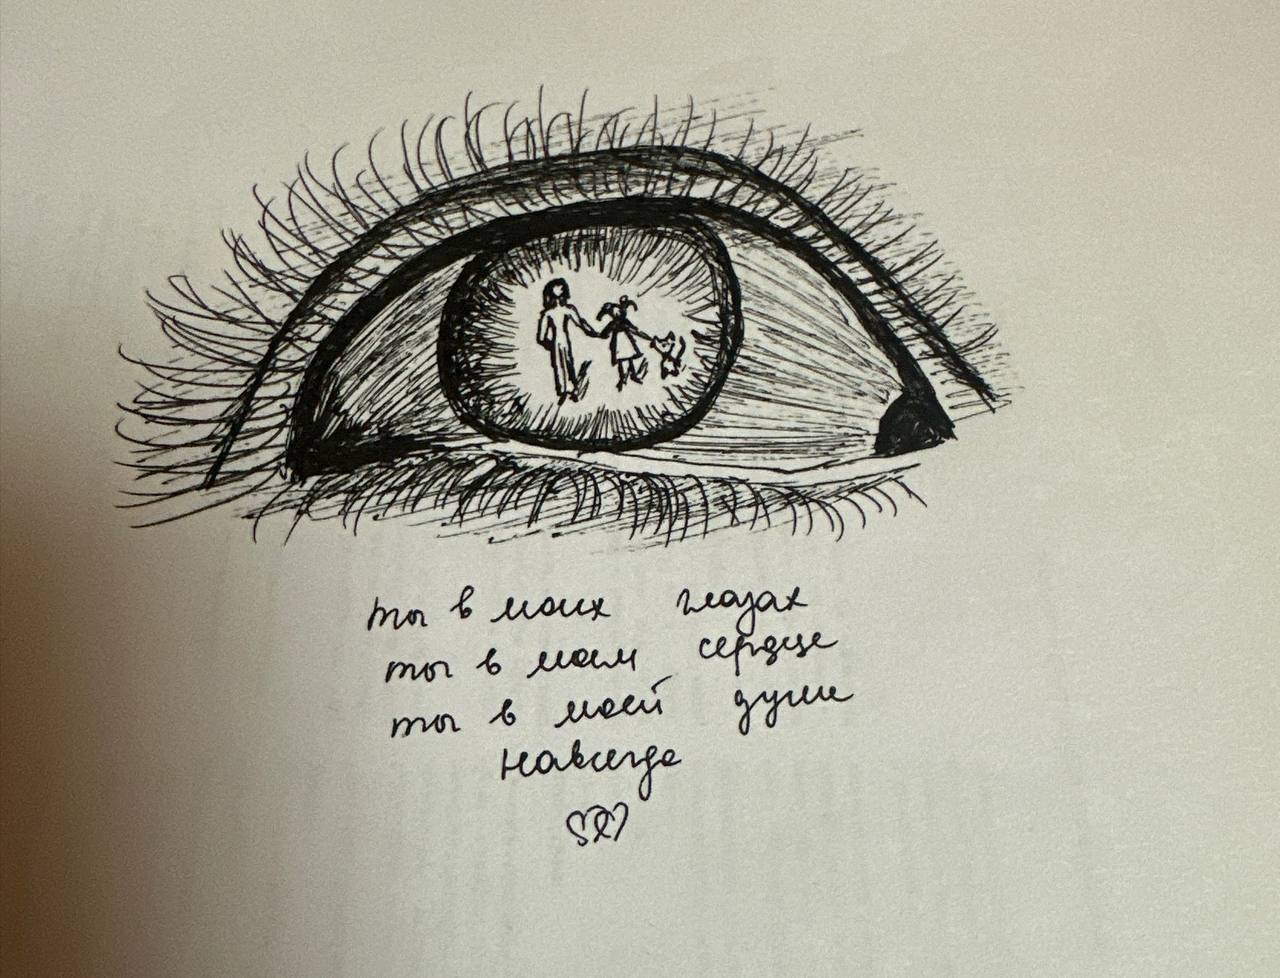 ты в моих глазах
ты в моем сердце
ты в моей душе
навсегда